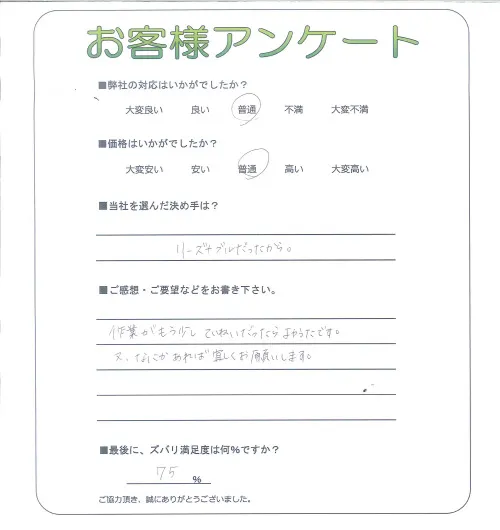 お客様アンケート
■弊社の対応はいかがでしたか?
大変良い 良い 普通 不満 大変不満
■価格はいかがでしたか?
大変安い 安い 普通 高い 大変高い
■当社を選んだ決め手は?
リーズナブルだったから。
■ご感想・ご要望などをお書き下さい。
作業がもう少していねいだったらよかったです。
又、なにかあれば宜しくお願いします。
■最後に、ズバリ満足度は何%ですか?
75 %
ご協力頂き、誠にありがとうございました。